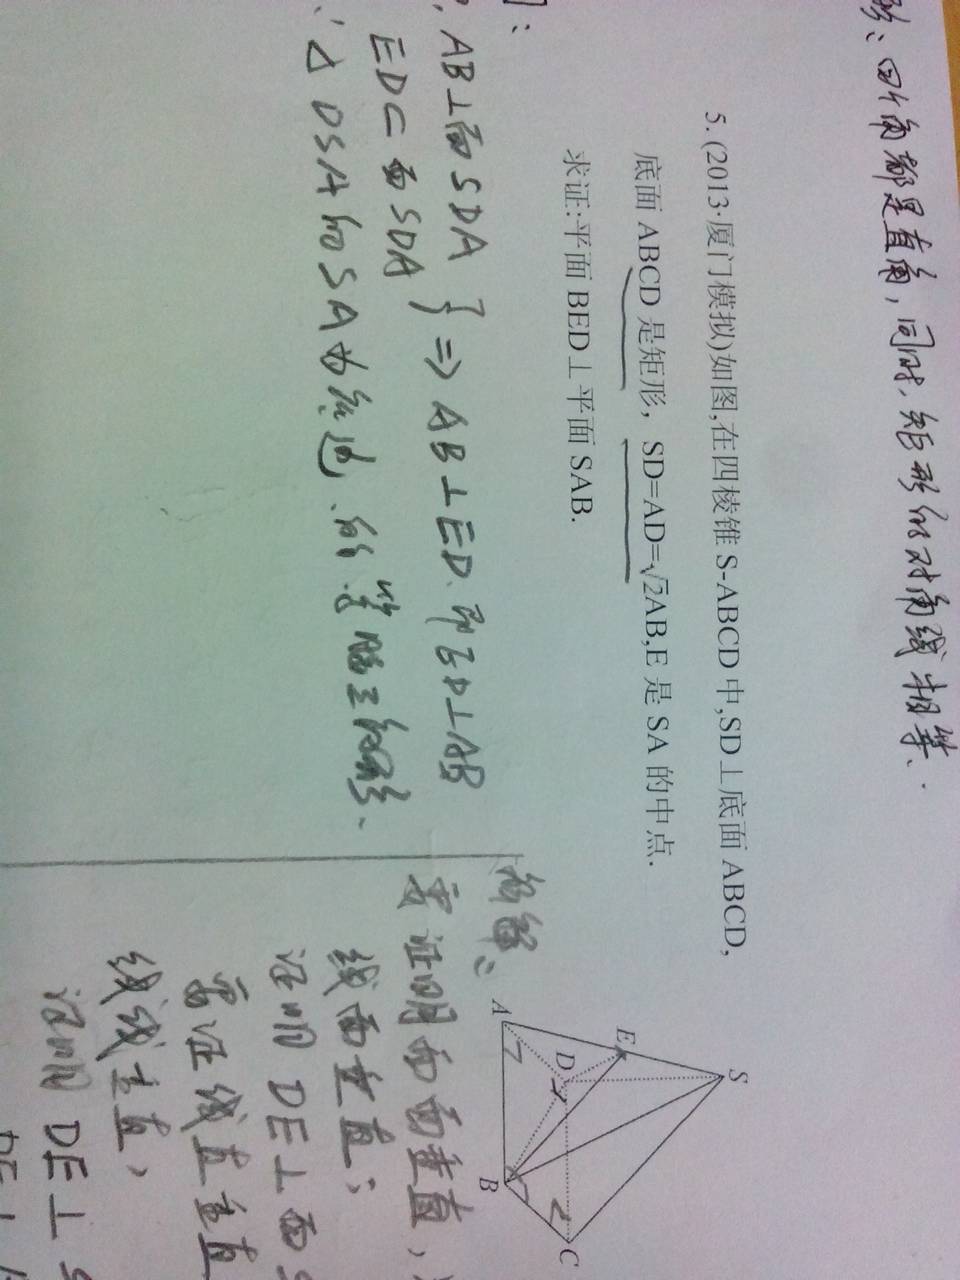 形、四个角都是直角,同时,矩形的对角线相等.
5.(2013·厦门模拟)如图,在四棱锥S-ABCD中,SD⊥底面ABCD,
底面ABCD是矩形, SD=AD=√2AB,E是SA的中点.
求证:平面BED⊥平面SAB.
AB⊥面SDA
ED⊂面SDA
} ⇒ AB⊥ED.即ED⊥AB
DSA 的等腰三角形.
需证明面面垂直,
线面垂直;
证明 DE⊥面S
需证线面垂直
线线垂直,
证明 DE⊥S
DE⊥
S
E
A
D
B
C